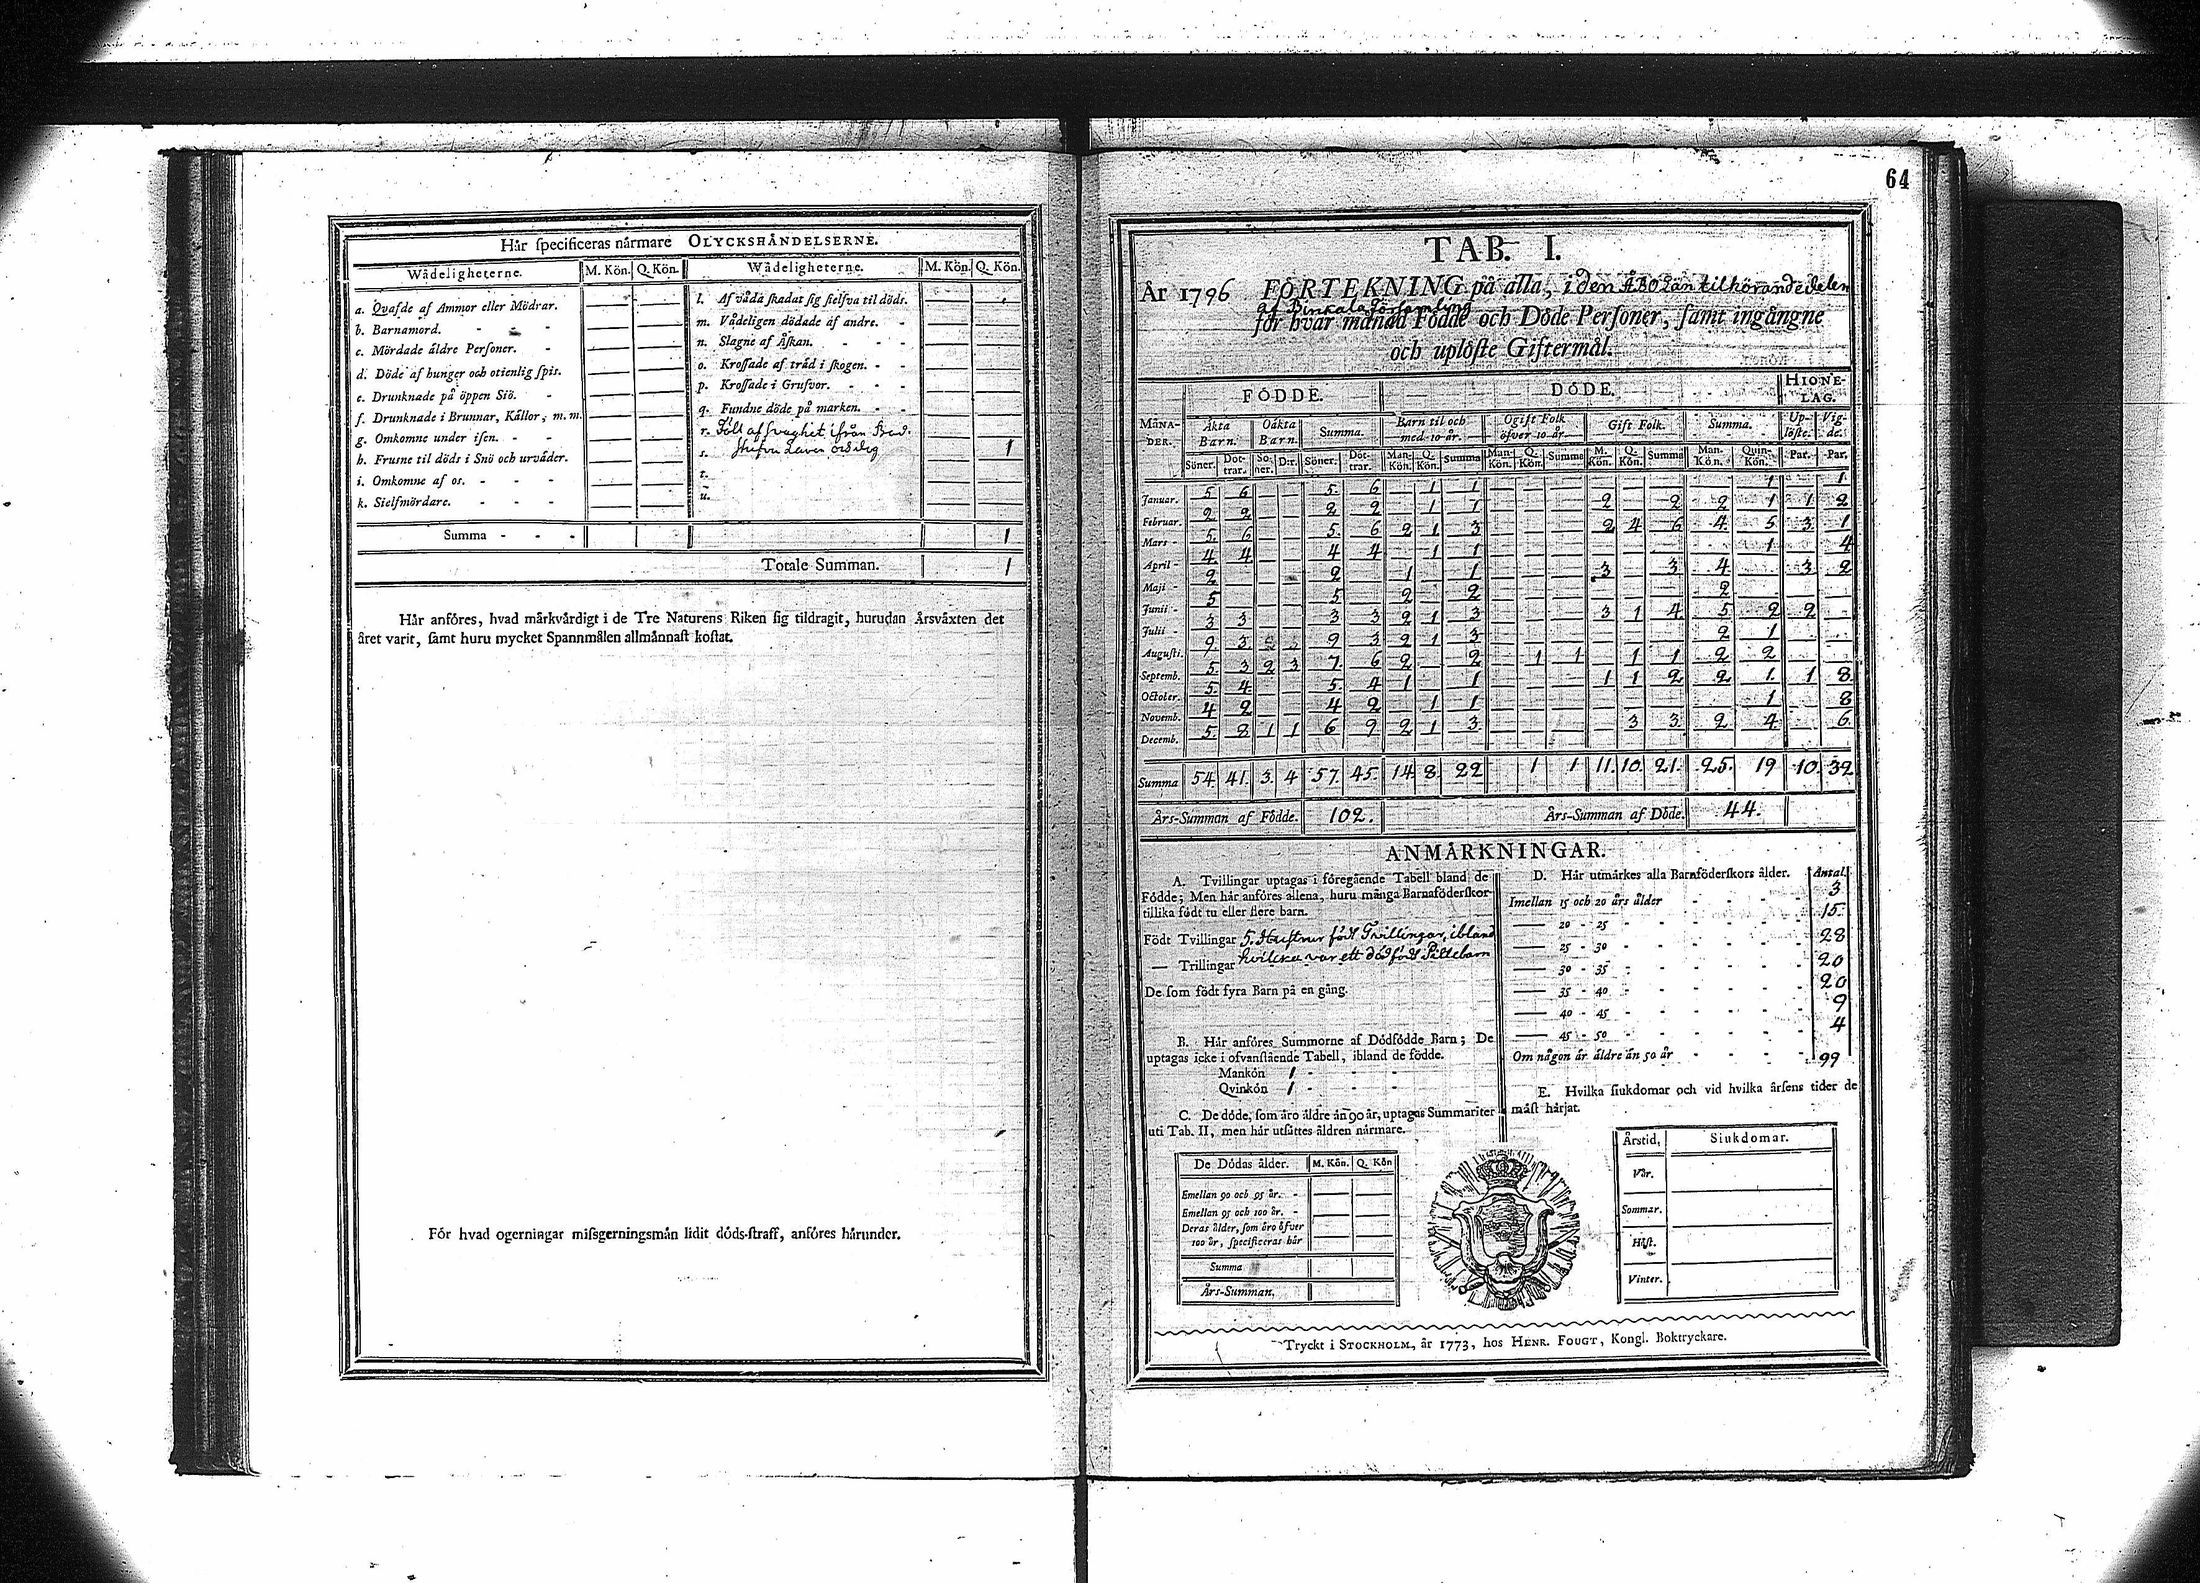 Hår ſpecificeras nårmare OLYCKSHÅNDELSERNE.
Wådeligheterne. M. Kön. Q. Kön. Wådeligheterne. M. Kön. Q. Kön.
a. Qvafde af Ammor eller Mödrar. l. Af våda ſkadat ſig ſielfva til döds.
b. Barnamord. m. Vådeligen dödade af andre.
c. Mördade äldre Perſoner. n. Slagne af Åſkan.
d. Döde af hunger och otienlig ſpis. o. Kroſſade af tråd i ſkogen.
e. Drunknade på öppen Siö. p. Kroſſade i Grufvor.
f. Drunknade i Brunnar, Källor, m. m. q. Fundne döde på marken.
g. Omkomne under iſen. r. Föll af ſvaghet ifrån
h. Fruſne til döds i Snö och urväder. s. 1
i. Omkomne af os. t.
k. Sielfmördare. u.
Summa 1
Totale Summan. 1
Hår anföres, hvad mårkvårdigt i de Tre Naturens Riken ſig tildragit, hurudan Årsvåxten det
året varit, ſamt huru mycket Spannmålen allmånnaſt koſtat.
Fór hvad ogerningar miſsgerningsmån lidit dóds-ſtraff, anfóres hårunder.
64
TAB. I.
År 1796 FÖRTEKNING på alla, i den ÅBO Län tilhörande delen
af Församling
för hvar månad Födde och Döde Perſoner, ſamt ingångne
och uplöſte Giftermål.
FÖDDE. DÖDE. HIONE-LAG.
MÅNA-DER. Äkta Barn. Oäkta Barn. Summa. Barn til och med 10 år. Ogift Folk öfver 10 år. Gift Folk. Summa. Up-löſte. Vig-de.
Söner. Döt-trar. Sö-ner. D:r. Söner. Döt-trar. Man-Kön. Q. Kön. Summa Man-Kön. Q. Kön. Summa M. Kön. Q. Kön. Summa Man-Kön. Quin-Kön. Par. Par.
Januar. 5 6 5 6 1 1 1 1
Februar. 2 2 2 2 1 1 2 2 2 1 1 2
Mars 5 6 5 6 2 1 3 2 4 6 4 5 3 1
April 4 4 4 4 1 1 1 4
Maji 2 2 1 1 3 3 4 3 2
Junii 5 5 2 2 2
Julii 3 3 3 3 2 1 3 3 1 4 5 2 2
Auguſti. 9 3 9 3 2 1 3 2 1
Septemb. 5 3 2 3 7 6 2 2 1 1 1 1 2 2
October. 5 4 5 4 1 1 1 1 2 2 1 1 8
Novemb. 4 2 4 2 1 1 1 8
Decemb. 5 8 1 1 6 9 2 1 3 3 3 2 4 6
Summa 54 41 3 4 57 45 14 8 22 1 1 11 10 21 25 19 10 32
Års-Summan af Födde. 102. Års-Summan af Döde. 44.
ANMÅRKNINGAR.
A. Tvillingar uptagas i föregående Tabell bland de
Födde; Men här anföres allena, huru många Barnaföderſkor
tillika födt tu eller flere barn.
Födt Tvillingar 5. Huſtrur födt Tvillingar, ibland
— Trillingar hvilka var ett dödfödt
De ſom födt fyra Barn på en gång.
B. Hår anföres Summorne af Dödfödde Barn; De
uptagas icke i ofvanſtående Tabell, ibland de födde.
Mankón 1
Qvinkón 1
C. De döde, ſom äro äldre än 90 år, uptagas Summariter
uti Tab. II, men hår utſåttes åldren nårmare.
De Dódas ålder. M. Kön. Q. Kön
Emellan 90 och 95 år.
Emellan 95 och 100 år.
Deras ålder, ſom äro öfver
100 år, ſpecificeras här
Summa
Års-Summan.
D. Hår utmårkes alla Barnföderſkors ålder. Antal.
Imellan 15 och 20 års ålder 3
20 - 25 15
25 - 30 28
30 - 35 20
35 - 40 20
40 - 45 9
45 - 50 4
Om någon är äldre än 50 år 99
E. Hvilka ſiukdomar och vid hvilka årſens tider de
måſt hårjat.
Årstid, Siukdomar.
Vår.
Sommar.
Höſt.
Vinter.
Tryckt i STOCKHOLM, år 1773, hos HENR. FOUGT, Kongl. Boktryckare.